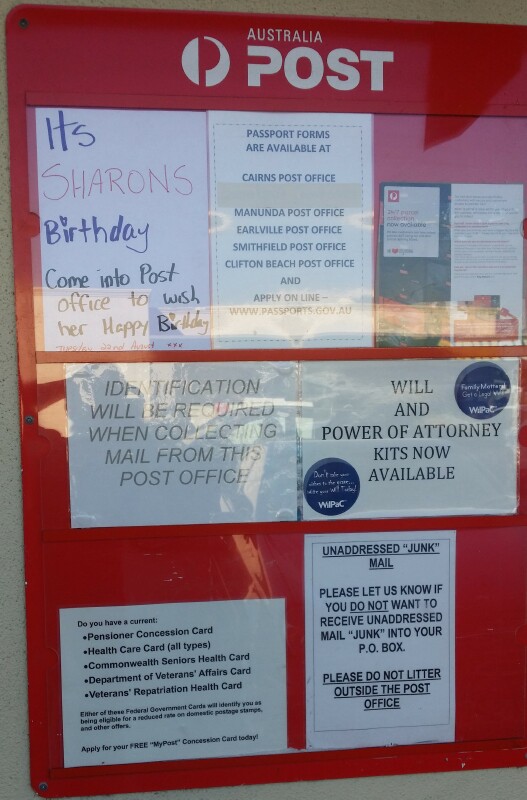 AUSTRALIA
POST
Its
SHARONS
Birthday
Come into Post
office to wish
her Happy Birthday
Tuesday 22nd August xxx
PASSPORT FORMS
ARE AVAILABLE AT
CAIRNS POST OFFICE
MANUNDA POST OFFICE
EARLVILLE POST OFFICE
SMITHFIELD POST OFFICE
CLIFTON BEACH POST OFFICE
AND
APPLY ON LINE –
WWW.PASSPORTS.GOV.AU
24/7 parcel
collection
now available
IDENTIFICATION
WILL BE REQUIRED
WHEN COLLECTING
MAIL FROM THIS
POST OFFICE
WILL
AND
POWER OF ATTORNEY
KITS NOW
AVAILABLE
Family Matters
Get a Legal Will
WilPaC
Don't take your
wishes to the grave...
write your Will Today!
WilPaC
Do you have a current:
•Pensioner Concession Card
•Health Care Card (all types)
•Commonwealth Seniors Health Card
•Department of Veterans' Affairs Card
•Veterans' Repatriation Health Card
Either of these Federal Government Cards will identify you as
being eligible for a reduced rate on domestic postage stamps,
and other offers.
Apply for your FREE "MyPost" Concession Card today!
UNADDRESSED "JUNK"
MAIL
PLEASE LET US KNOW IF
YOU DO NOT WANT TO
RECEIVE UNADDRESSED
MAIL "JUNK" INTO YOUR
P.O. BOX.
PLEASE DO NOT LITTER
OUTSIDE THE POST
OFFICE